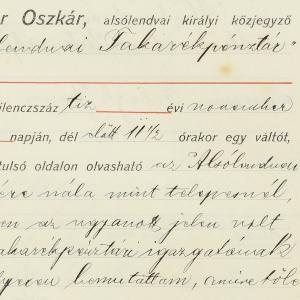 r Oszkár, alsólendvai királyi közjegyző
lendvai Takarékpénztár"
ilenczszáz tiz évi november
napján, dél előtt 11 1/2 órakor egy váltót,
tulsó oldalon olvasható az Alsólendvai
nála mint telepesnél,
en az ugyanott jelen volt
akarékpénztári igazgatónak
bemutattam, amire tőle